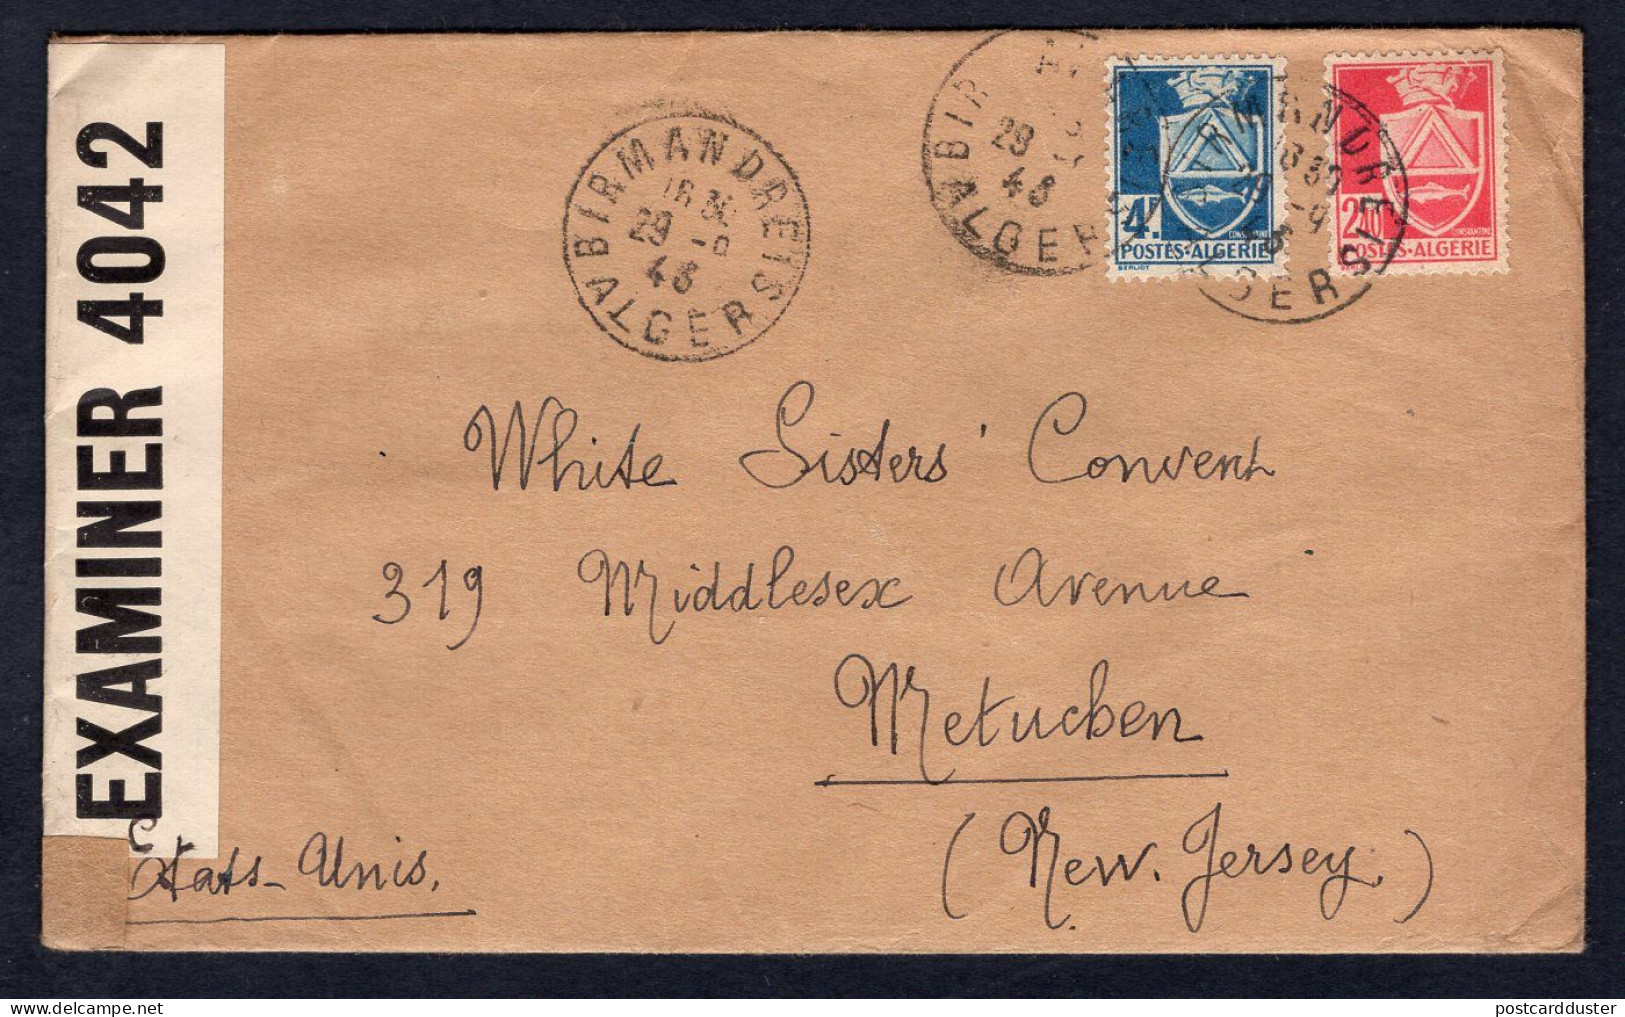 EXAMINER 4042
BIRMANDREIS
18 30
29 -9
43
ALGER
BIR
29
43
ALGER
4F
CONSTANTINE
POSTES-ALGERIE
BERLIOT
18 30
-9
ALGER
CONSTANTINE
POSTES-ALGERIE
White Sisters' Convent
319 Middlesex Avenue
Metuchen
(New. Jersey.)
Etats-Unis.
postcardduster